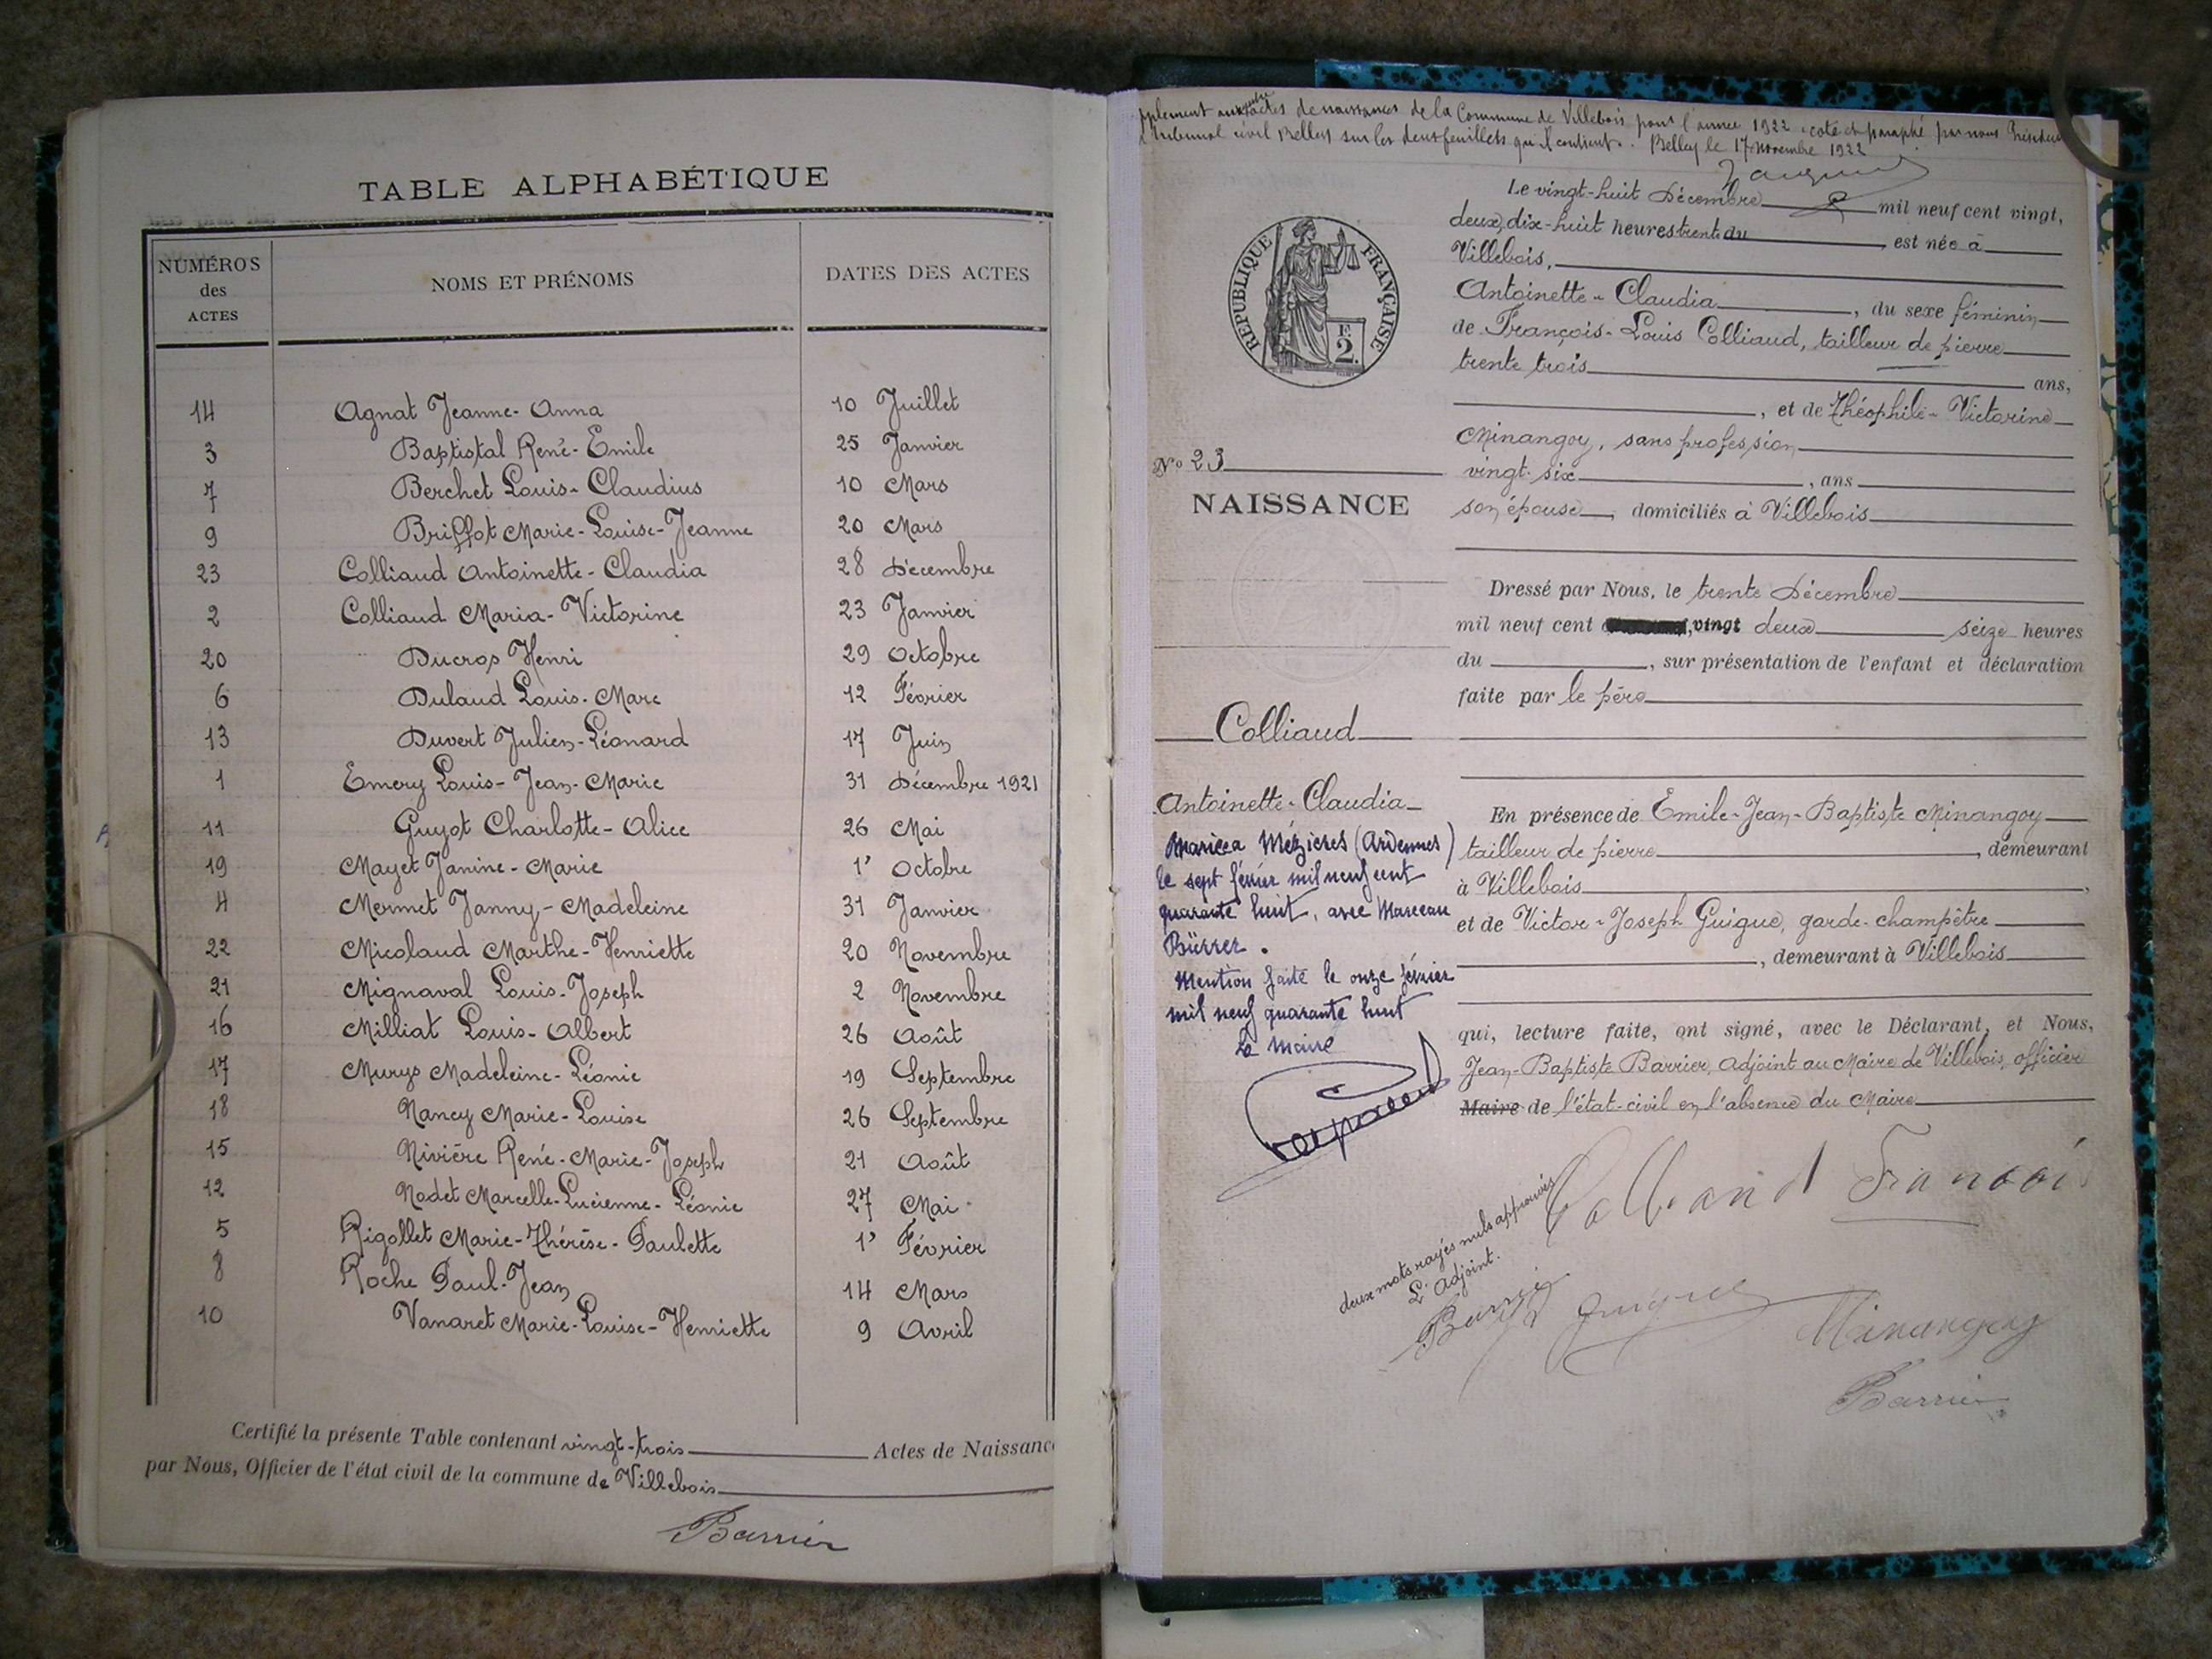 TABLE ALPHABÉTIQUE
NUMÉROS des ACTES NOMS ET PRÉNOMS DATES DES ACTES
14 Agnat Jeanne-Anna 10 Juillet
3 Baptistal René-Emile 25 Janvier
7 Berchet Louis-Claudius 10 Mars
9 Briffot Marie-Louise-Jeanne 20 Mars
23 Colliaud Antoinette-Claudia 28 Décembre
2 Colliaud Maria-Victorine 23 Janvier
20 Ducros Henri 29 Octobre
6 Dulaud Louis-Marc 12 Février
13 Duvert Julien-Léonard 17 Juin
1 Emery Louis-Jean-Marie 31 Décembre 1921
11 Guyot Charlotte-Alice 26 Mai
19 Mayet Janine-Marie 1' Octobre
4 Mermet Janny-Madeleine 31 Janvier
22 Micolaud Marthe-Henriette 20 Novembre
21 Mignaval Louis-Joseph 2 Novembre
16 Milliat Louis-Albert 26 Août
17 Murys Madeleine-Léonie 19 Septembre
18 Nancy Marie-Louise 26 Septembre
15 Nivière René-Marie-Joseph 21 Août
12 Nodet Marcelle-Lucienne-Léonie 27 Mai
5 Rigollet Marie-Thérèse-Paulette 1' Février
8 Roche Paul-Jean 14 Mars
10 Vanaret Marie-Louise-Henriette 9 Avril
Certifié la présente Table contenant vingt-trois Actes de Naissance
par Nous, Officier de l'état civil de la commune de Villebois
Barrier
pplement aux actes de naissances de la Commune de Villebois pour l'année 1922 coté et paraphé par nous Président
Tribunal civil Belley sur les deux feuillets qu'il contient. Belley le 17 novembre 1922
RÉPUBLIQUE FRANÇAISE
2 F.
No 23
NAISSANCE
Colliaud
Antoinette-Claudia
Mariée a Mézières (Ardennes)
le sept février mil neuf cent
quarante huit, avec Marceau
Bürrer.
Mention faite le onze février
mil neuf quarante huit
Le maire
Le vingt-huit Décembre mil neuf cent vingt,
deux, dix-huit heures trente du est née à
Villebois,
Antoinette-Claudia, du sexe féminin
de François-Louis Colliaud, tailleur de pierre
trente trois ans,
, et de Théophile-Victorine
Minangoy, sans profession
vingt-six, ans
son épouse, domiciliés à Villebois
Dressé par Nous, le trente Décembre
mil neuf cent vingt deux seize heures
du, sur présentation de l'enfant et déclaration
faite par le père
En présence de Emile-Jean-Baptiste Minangoy
tailleur de pierre, demeurant
à Villebois,
et de Victor-Joseph Guigue, garde-champêtre
, demeurant à Villebois
qui, lecture faite, ont signé, avec le Déclarant, et Nous,
Jean-Baptiste Barrier, adjoint au Maire de Villebois, officier
Maire de l'état-civil en l'absence du Maire
deux mots rayés nuls approuvés
L'Adjoint.
Barrier
Colliand François
Guigue
Minangoy
Barrier